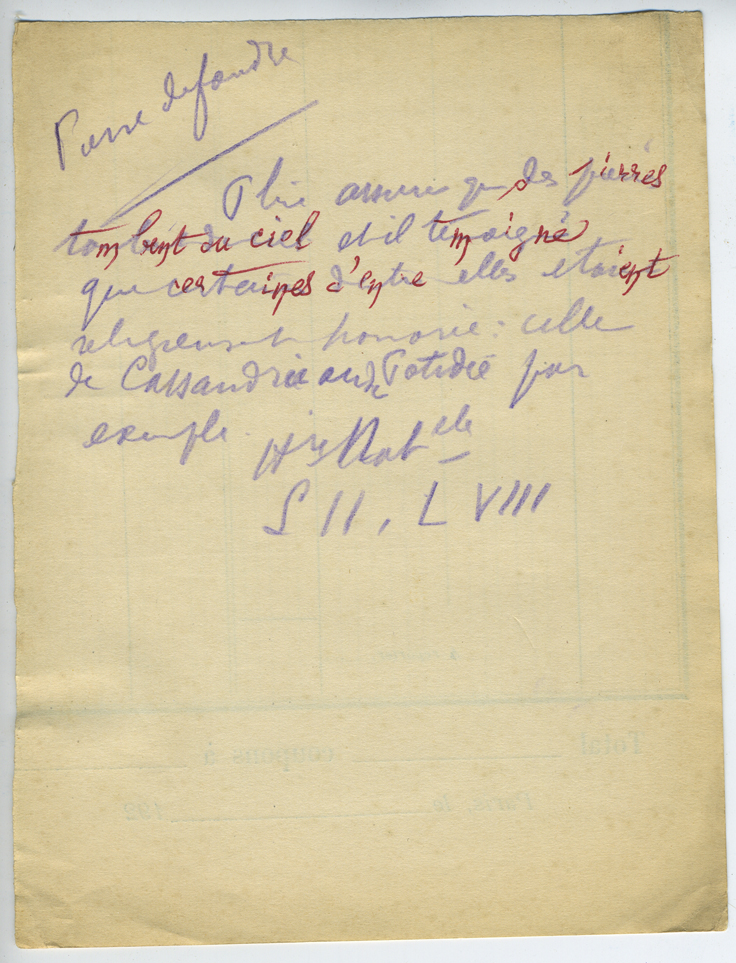 Pierre de foudre
Pline assure que des pierres
tombent du ciel et il temoigne
que certaines d'entre elles etaient
religieusement honorée : celle
de Cassandrie Potidée par
exemple. Hre Natelle
S II, L VIII
Total coupons à
Paris, le 192